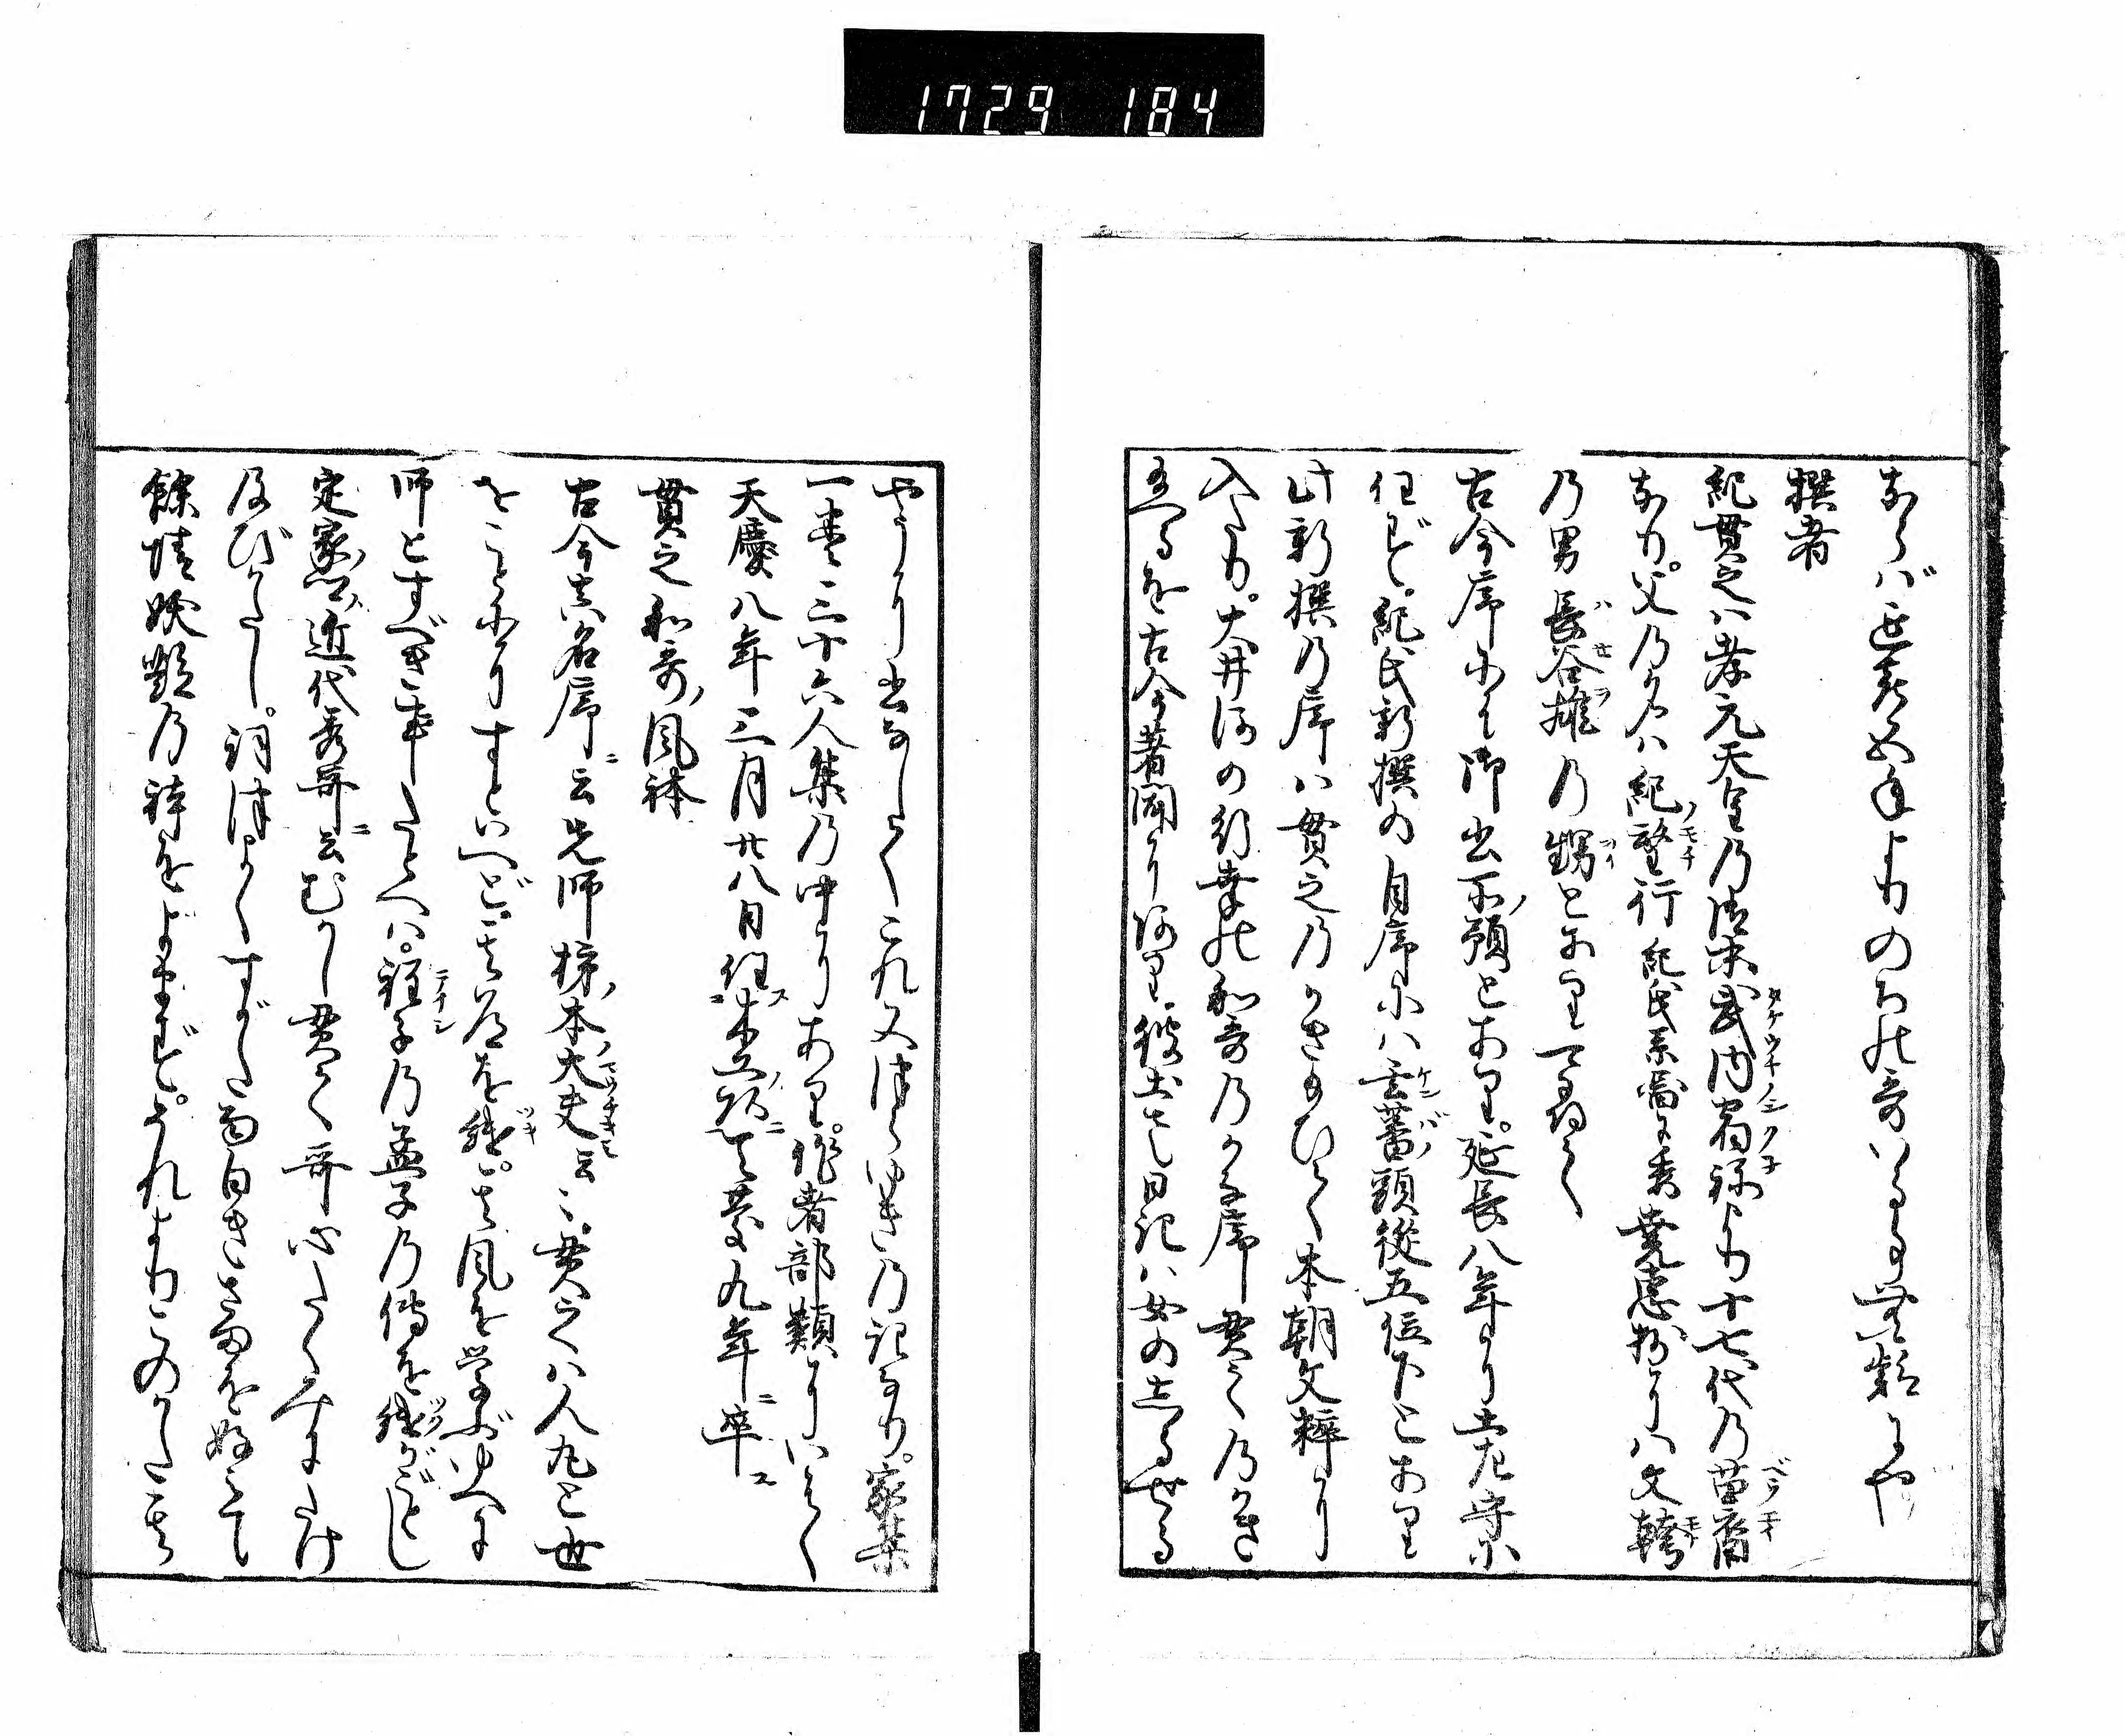 1729 184
ならば延喜五年よりのちの哥いるる事無疑にや
撰者
紀貫之ハ孝元天皇乃後末武内宿祢より十七代乃苗裔
なり。父乃名ハ紀望行紀氏系圖に委堯恵抄にハ文幹
乃男長谷雄乃甥となりてゐたる
古今序に御書所預とあり。延長八年に土左守に
任ず。紀氏新撰の自序にハ玄蕃頭従五位下とあり
此新撰乃序ハ貫之乃かきたまひて本朝文粋に
入たり。大井河の行幸の和哥乃かな序貫之乃かき
玉へるを古今著聞にのせり。彼土左日記ハ女の
やうに書なしたりこれ又はつゆき乃記なり。家集
一巻三十六人集乃中にあり。作者部類にいはく
天慶八年三月廿八日任木工頭天慶九年卒
貫之和哥風体
古今真名序云先師柿本大夫云々貫之ハ人丸と世
をことにすといへど其道を継。其風を学ぶゆへに
師とすべき事たとへハ。程子乃孟子乃傳を継がごとし
定家ノ近代秀哥ニ云むかし貫之哥心たくみにたけ
及びがたし。詞つよくすがたおもしろきさまをこのみて
餘情妖艶乃躰をよまず。それよりこのかた其